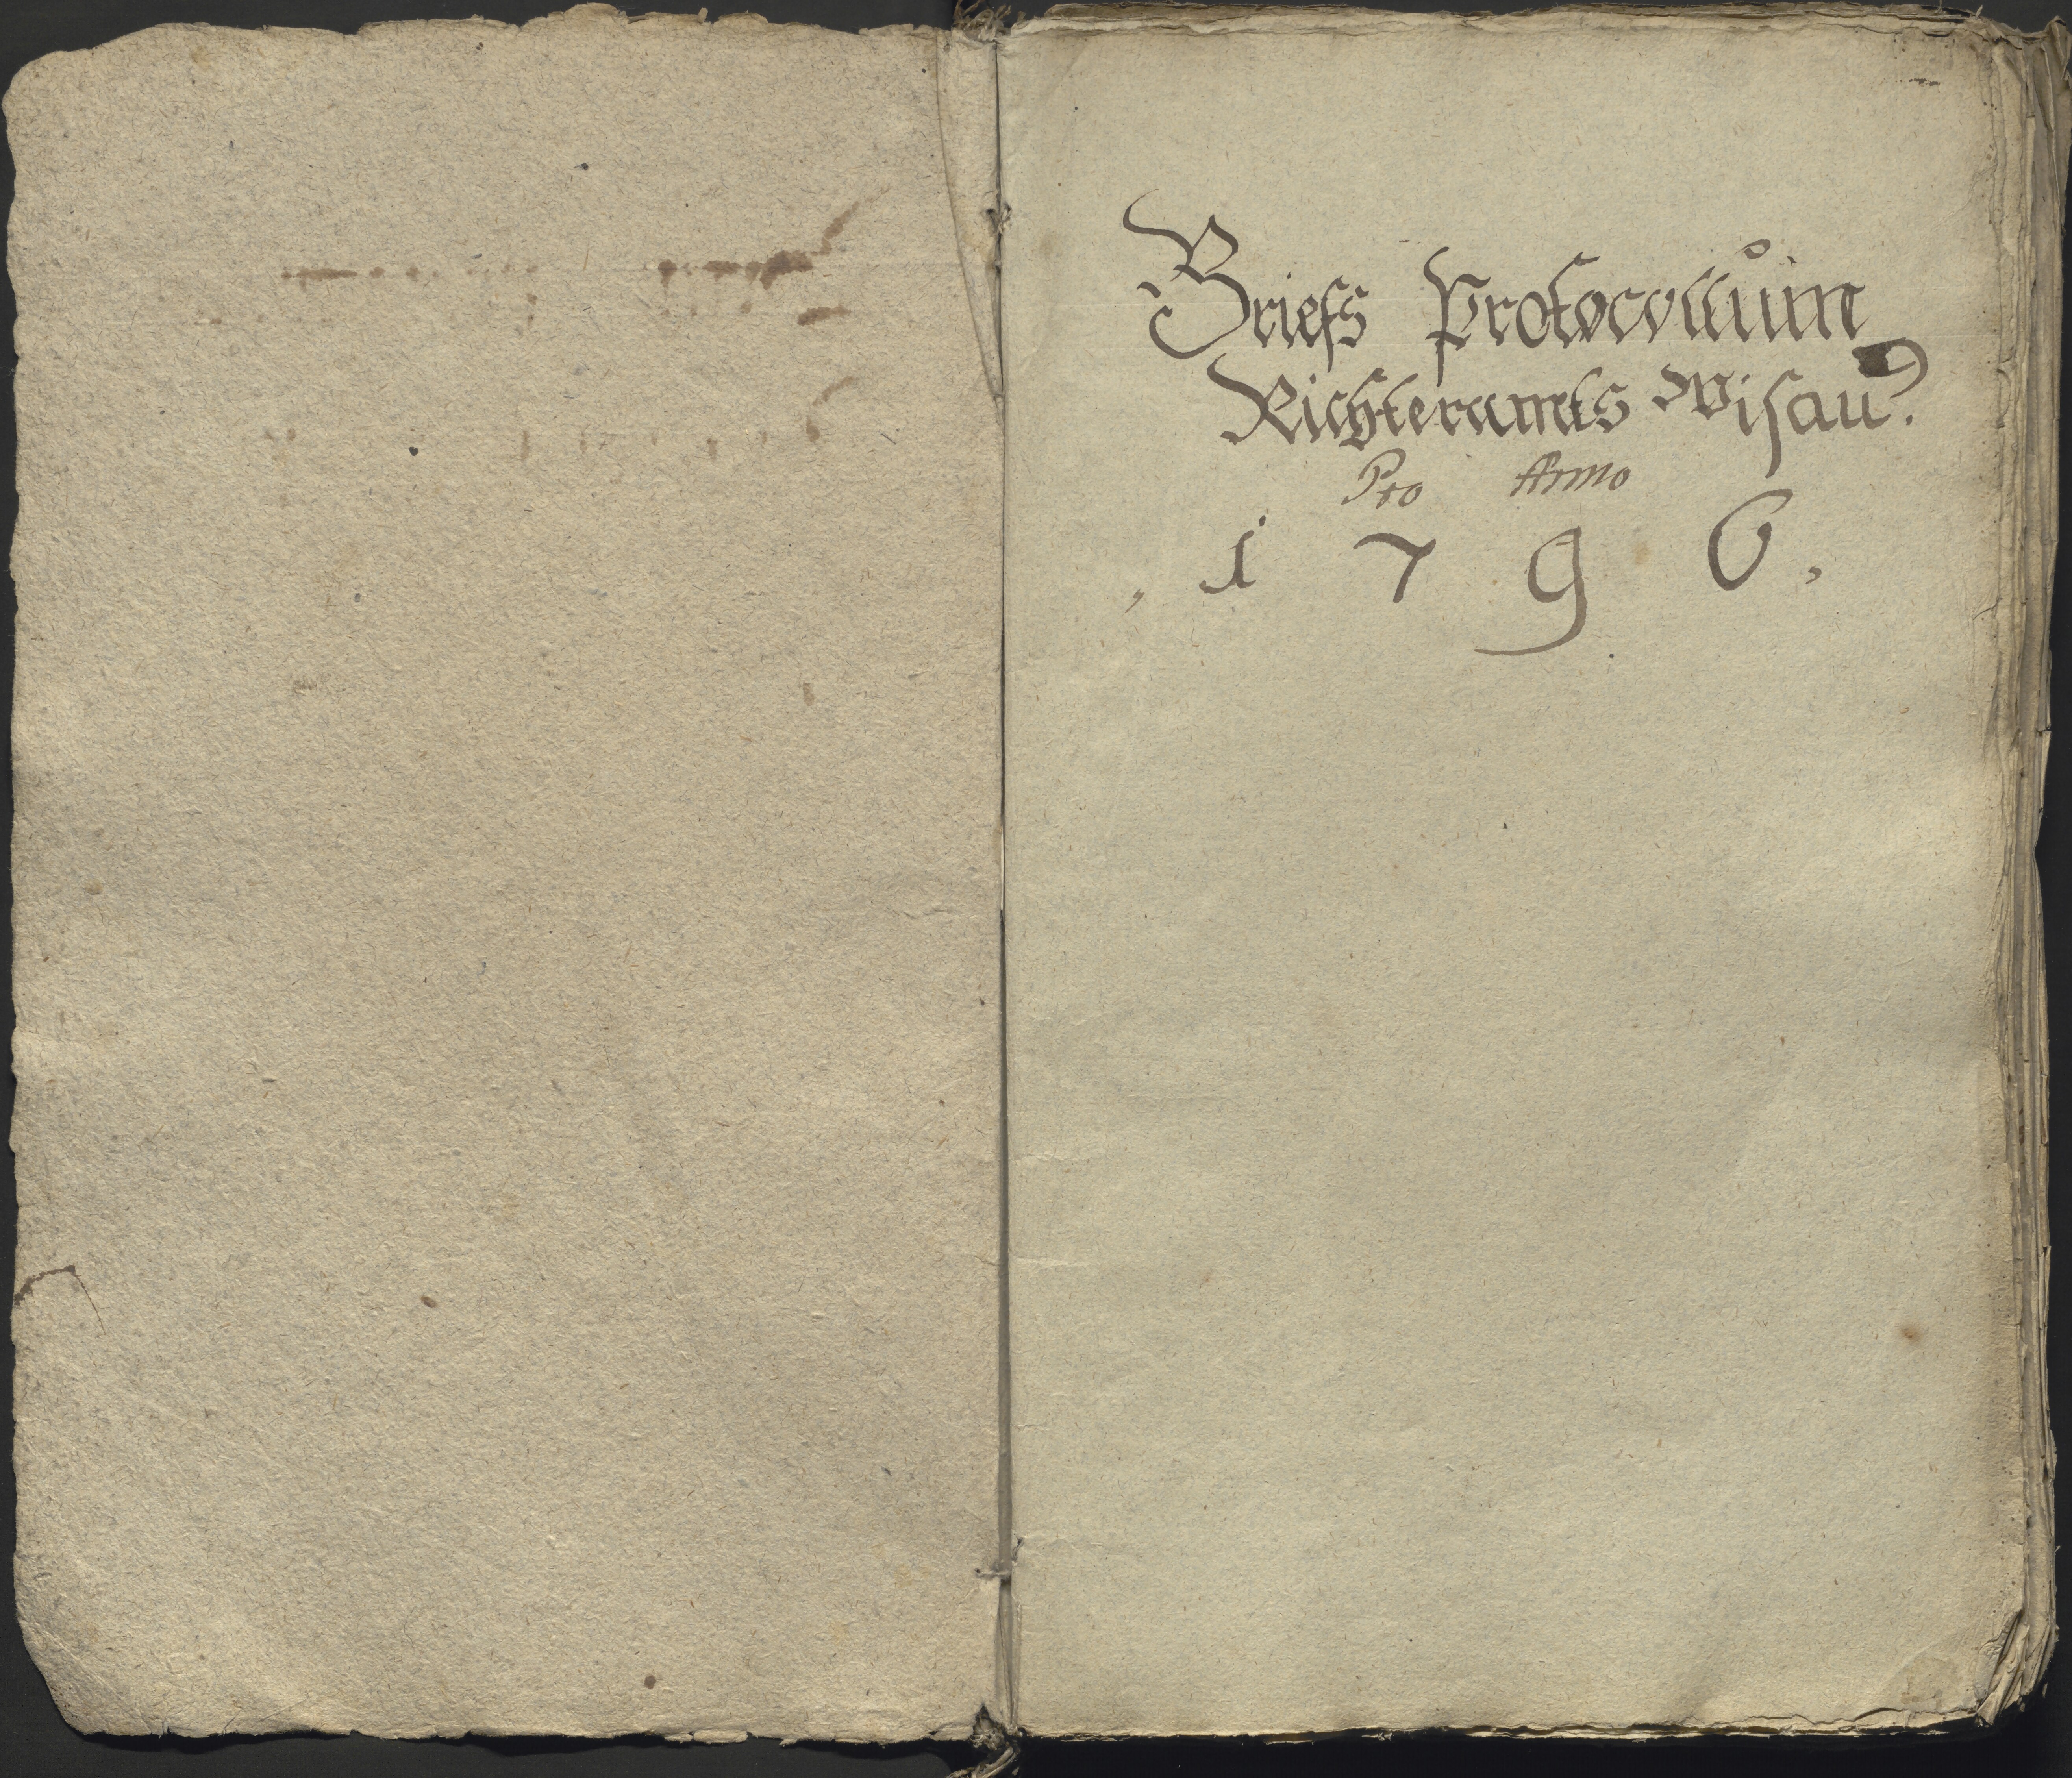 Briefs Protocollum
Richteramts Wisau.
Pro Anno
1 7 9 6.